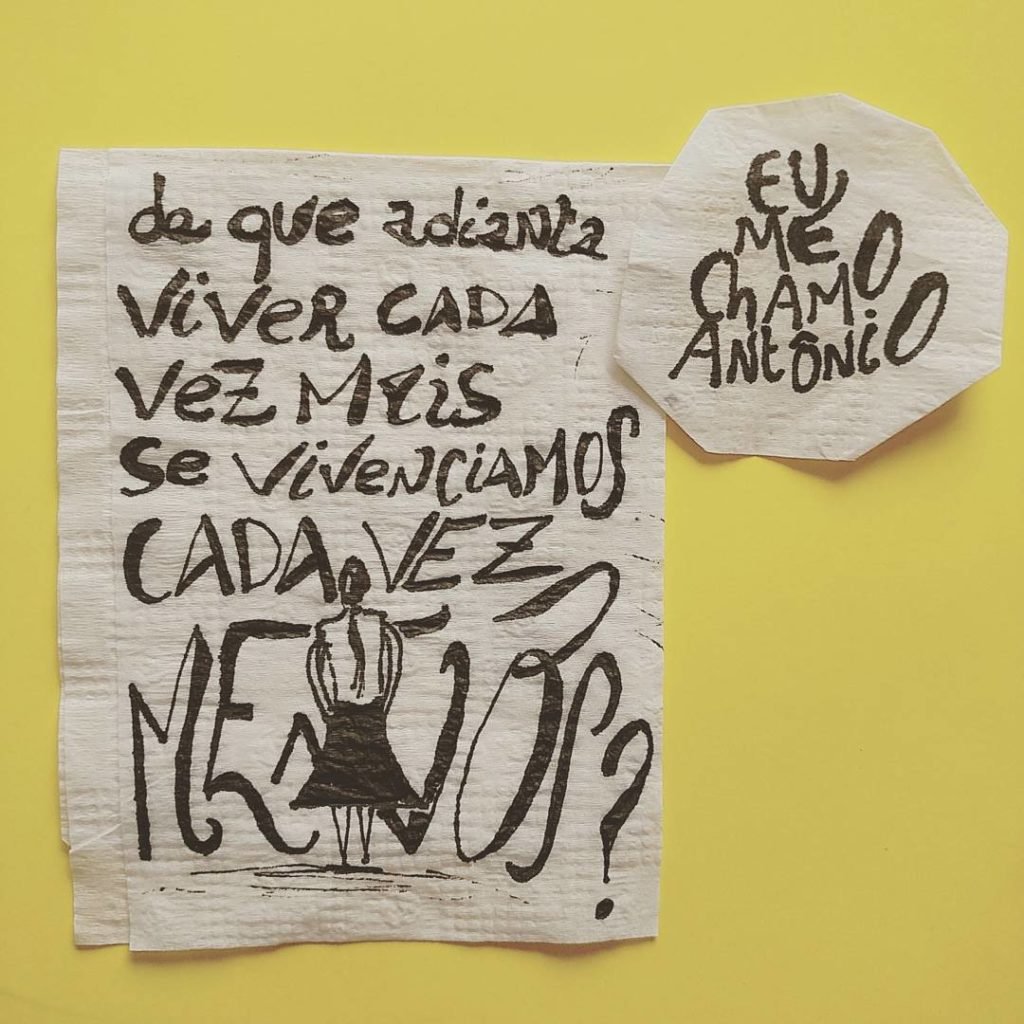 de que adianta
viver cada
vez mais
se vivenciamos
CADA VEZ
MENOS?
EU
ME
ChAMO
ANtÔNiO